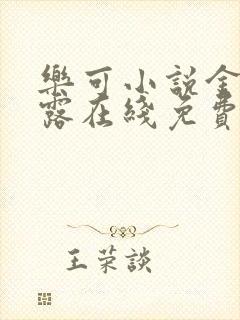 樂可小説金
露在綫免費
王荣談